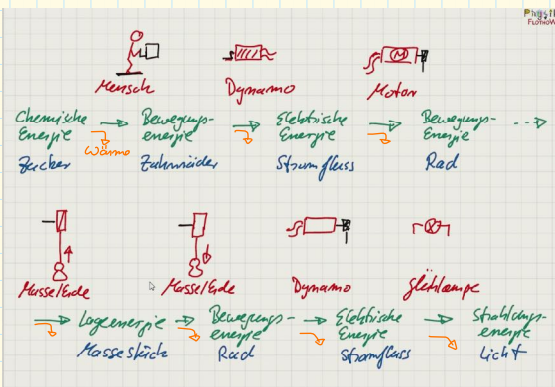 Mensch Dynamo Motor
Chemische Energie Bewegungs-energie Elektrische Energie Bewegungs-Energie
Wärme
Zucker Zahnräder Stromfluss Rad
Masse/Erde Masse/Erde Dynamo Glühlampe
Lageenergie Bewegungs-energie Elektrische Energie Strahlungs-energie
Massestück Rad Stromfluss Licht